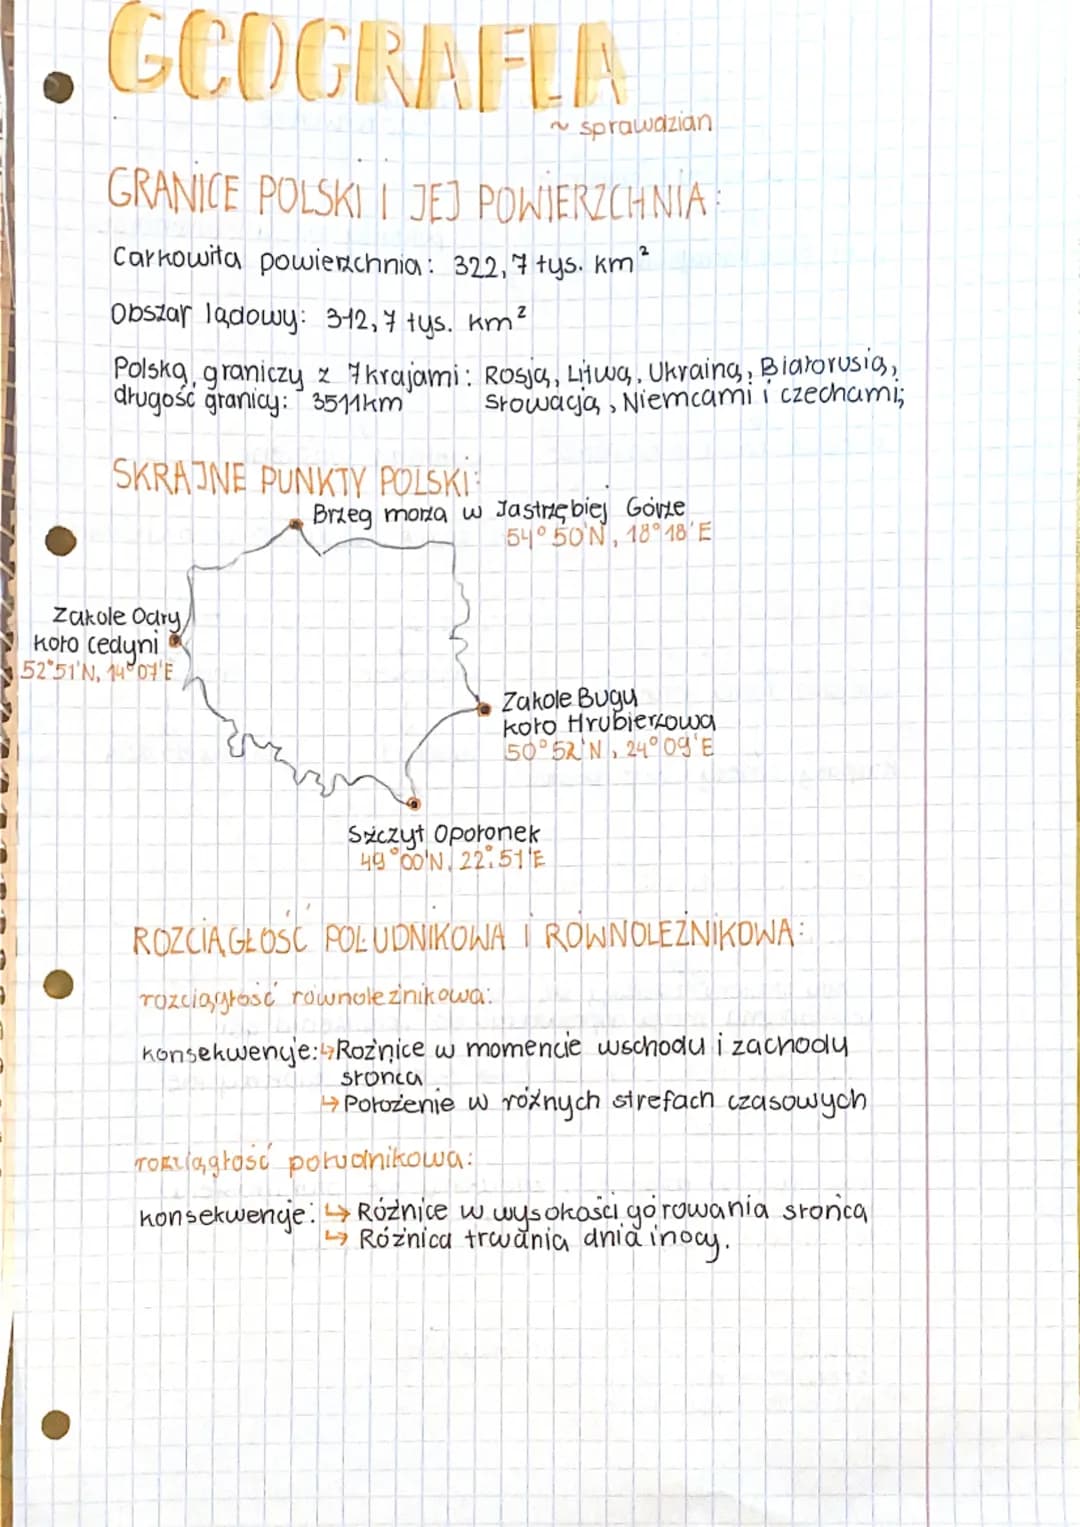 GEOGRAFIA
~ sprawdzian
GRANICE POLSKI I JEJ POWIERZCHNIA:
Całkowita powierzchnia: 322,7 tys. km²
Obszar lądowy: 312,7 tys. km²
Polska graniczy z 7 krajami: Rosją, Litwą, Ukrainą, Białorusią,
długość granicy: 3511km Słowacją, Niemcami i czechami;
SKRAJNE PUNKTY POLSKI:
Brzeg morza w Jastrzębiej Górze
54°50'N, 18°18'E
Zakole Odry
koło Cedyni
52°51'N, 14°07'E
Zakole Bugu
koło Hrubierzowa
50°52'N, 24°09'E
Szczyt Opołonek
49°00'N, 22°51'E
ROZCIĄGŁOŚĆ POŁUDNIKOWA I RÓWNOLEŻNIKOWA:
rozciągłość równoleżnikowa:
konsekwencje: ↳ Rożnice w momencie wschodu i zachodu
słońca
↳ Położenie w różnych strefach czasowych
rozciągłość południkowa:
konsekwencje: ↳ Różnice w wysokości górowania słońca
↳ Różnica trwania dnia i nocy.